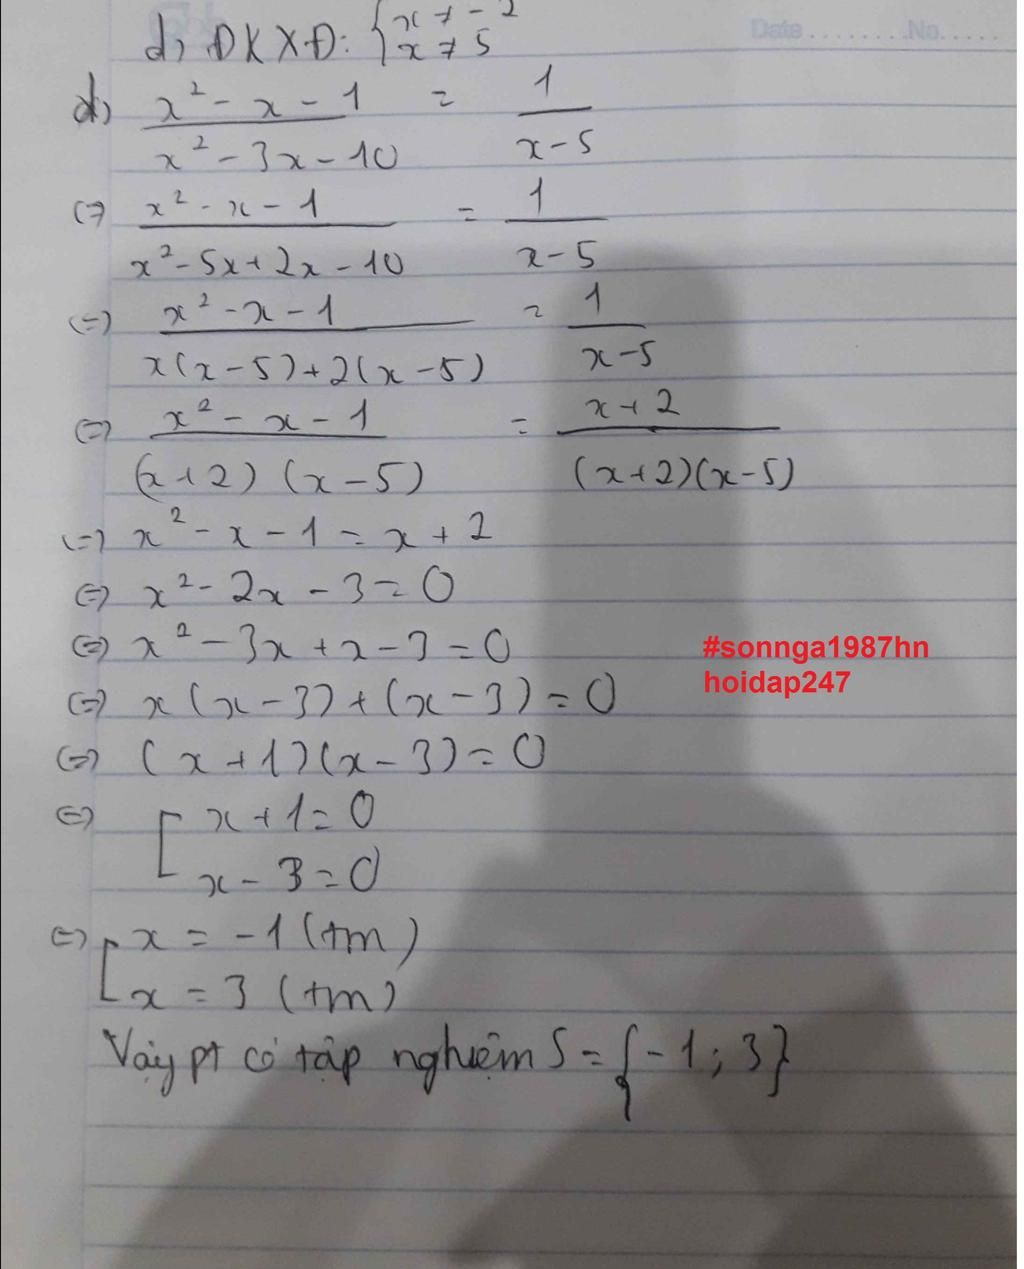 d, ĐKXĐ: { x ≠ -2
x ≠ 5
Date ........ No. ....
d, (x² - x - 1)/(x² - 3x - 10) = 1/(x - 5)
(=) (x² - x - 1)/(x² - 5x + 2x - 10) = 1/(x - 5)
(=) (x² - x - 1)/(x(x - 5) + 2(x - 5)) = 1/(x - 5)
(=) (x² - x - 1)/((x + 2)(x - 5)) = (x + 2)/((x + 2)(x - 5))
(=) x² - x - 1 = x + 2
(=) x² - 2x - 3 = 0
(=) x² - 3x + x - 3 = 0
(=) x(x - 3) + (x - 3) = 0
(=) (x + 1)(x - 3) = 0
(=) [ x + 1 = 0
x - 3 = 0
(=) [ x = -1 (tm)
x = 3 (tm)
Vậy pt có tập nghiệm S = {-1; 3}
#sonnga1987hn
hoidap247